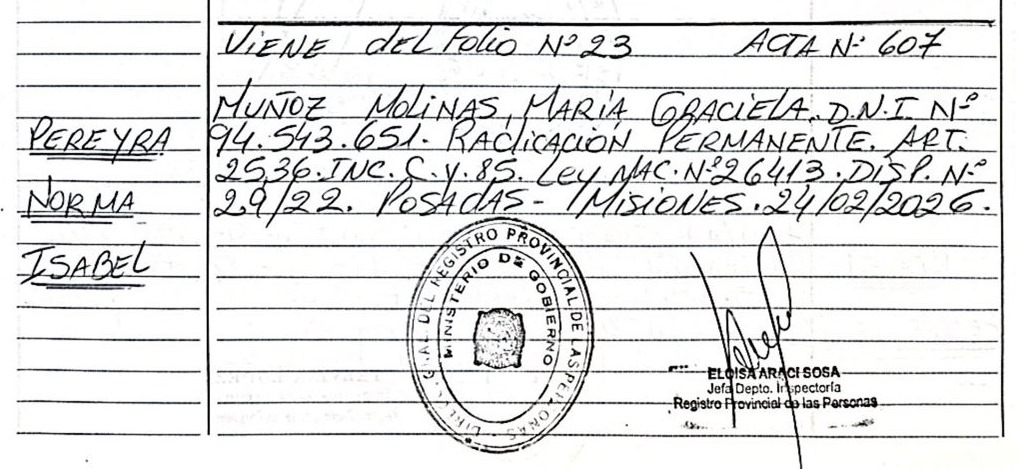 VIENE del Folio Nº 23 ACTA Nº 607
PEREYRA
NORMA
ISABEL
MUÑOZ MOLINAS, MARÍA GRACIELA. D.N.I Nº
94.543.651. RADICACIÓN PERMANENTE. ART.
2536. INC. C. y. 85. Ley NAC. Nº 26413. DISP. Nº
29/22. POSADAS - MISIONES. 24/02/2026.
DIREC. GRAL. DEL REGISTRO PROVINCIAL DE LAS PERSONAS
MINISTERIO DE GOBIERNO
ELOISA ARACI SOSA
Jefa Depto. Inspectoría
Registro Provincial de las Personas